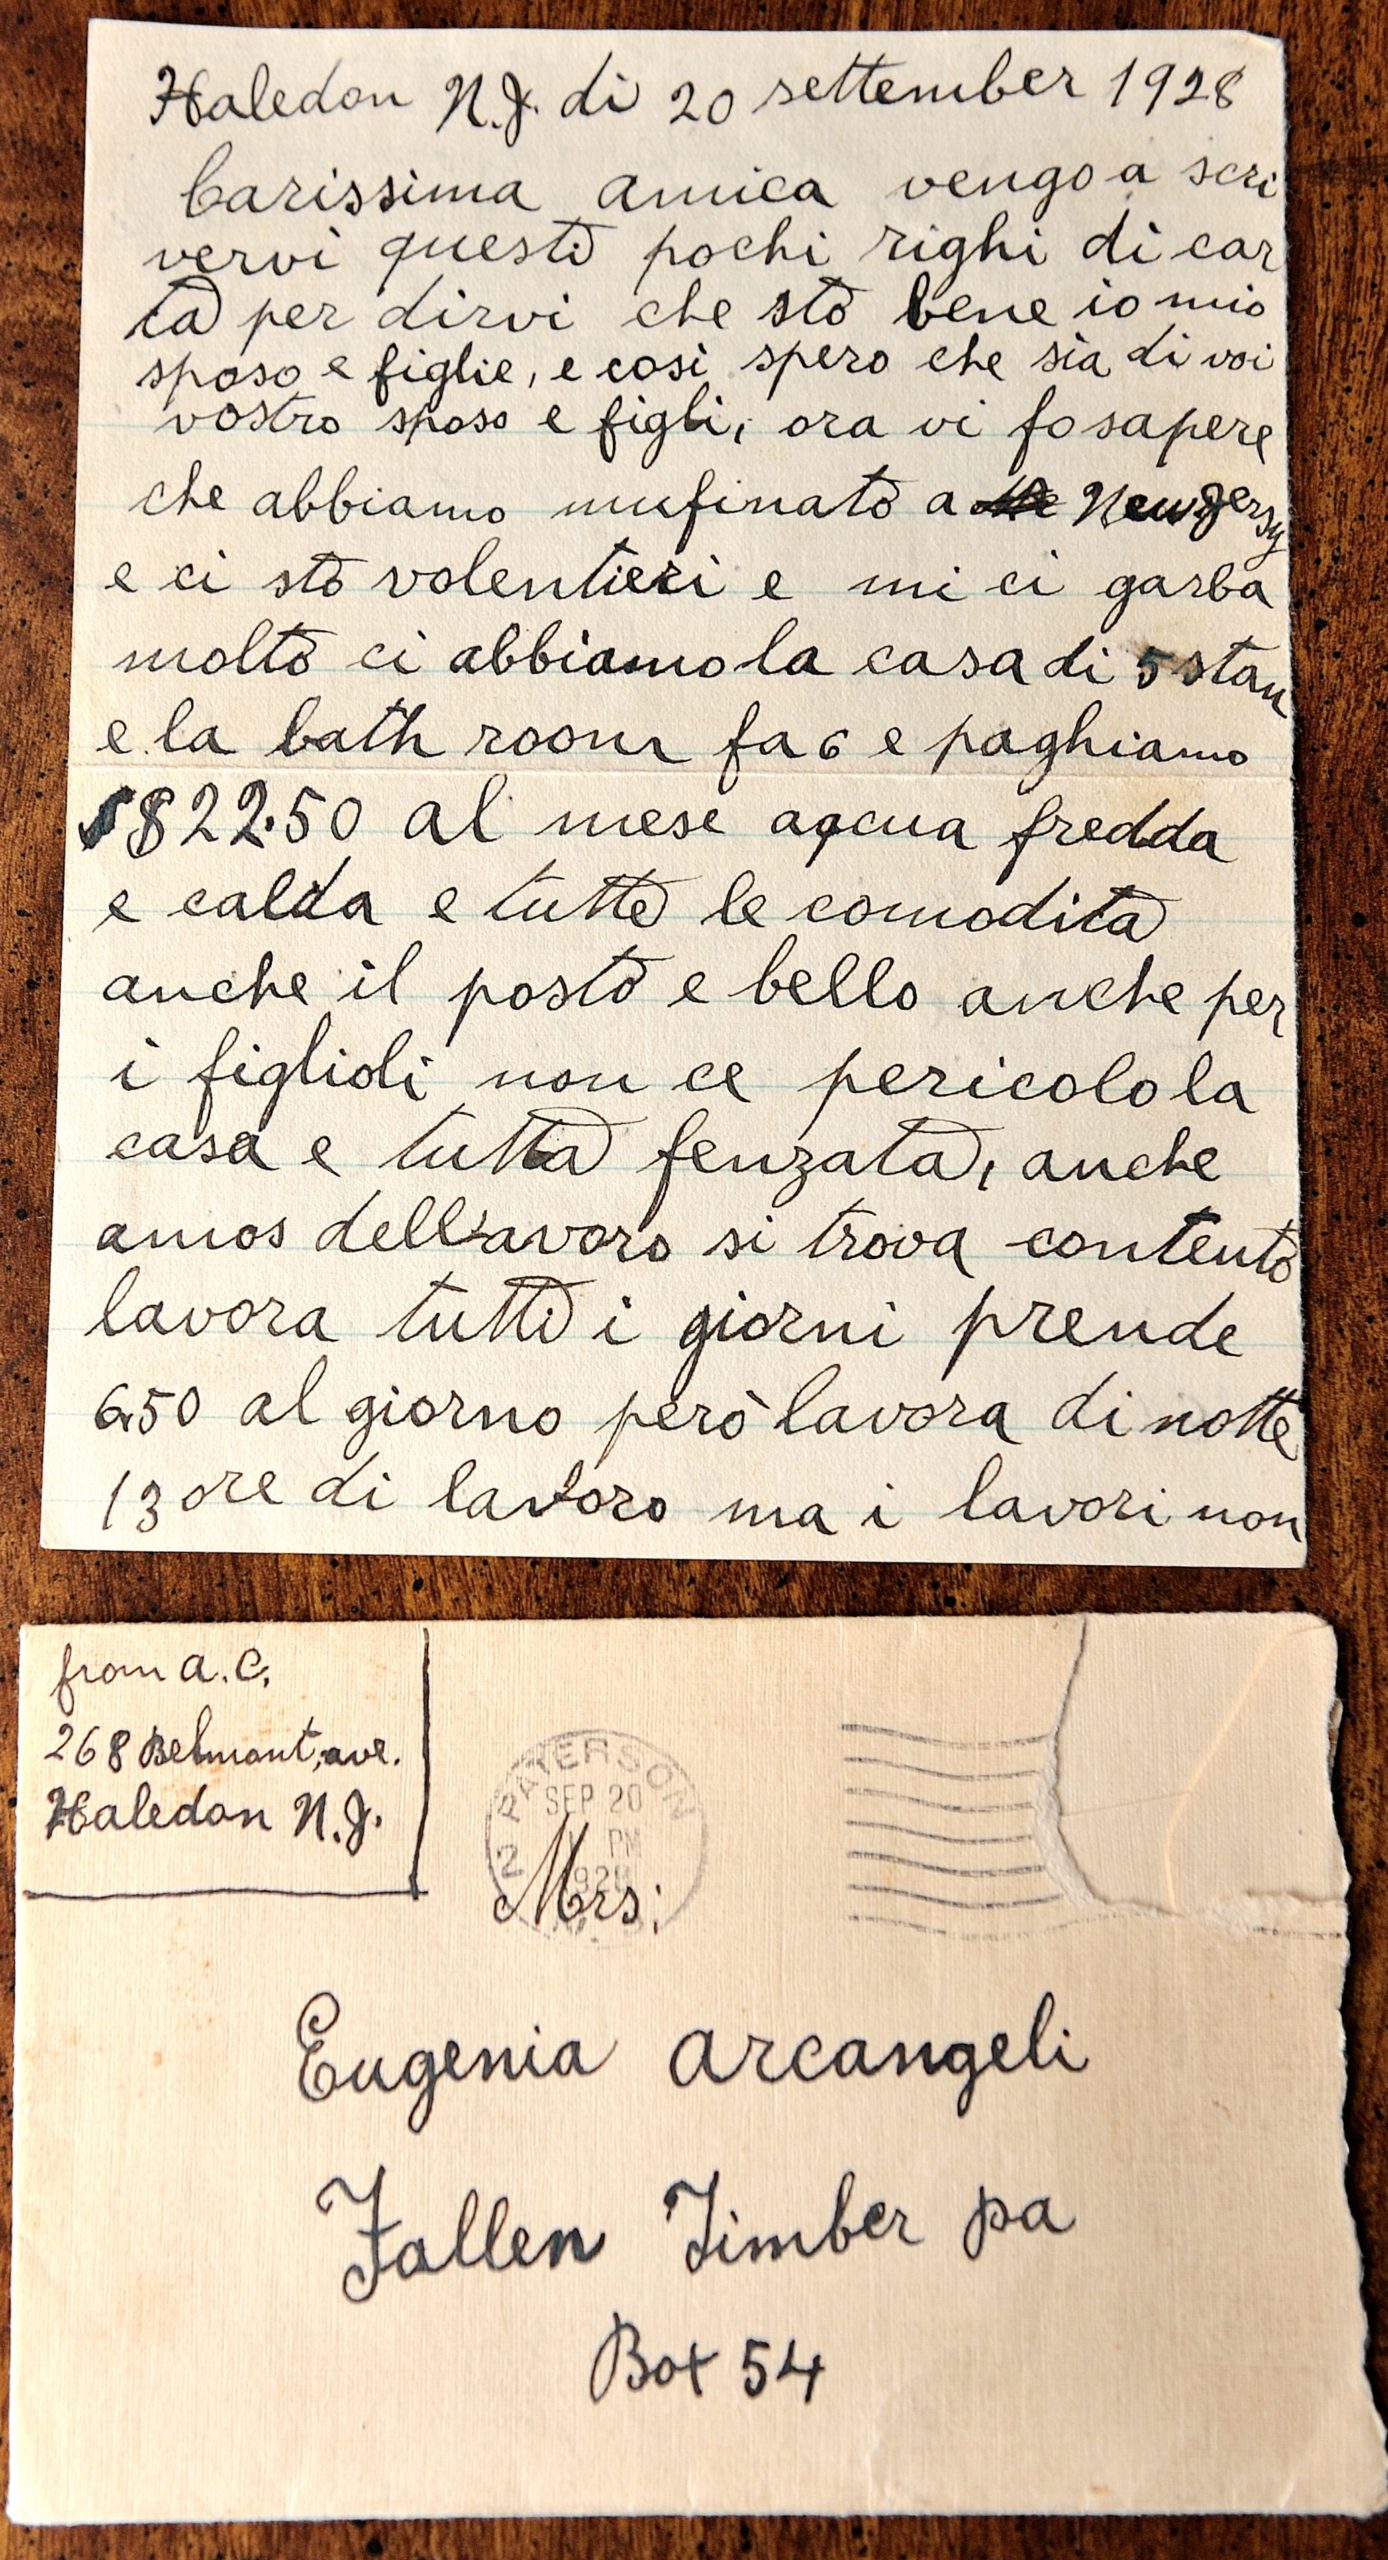 Haledon N.J. di 20 settember 1928
Carissima amica vengo a scri
vervi questi pochi righi di car
ta per dirvi che sto bene io mio
sposo e figlie, e cosi spero che sia di voi
vostro sposo e figli, ora vi fo sapere
che abbiamo mufinato a New Jersy
e ci sto volentieri e mi ci garba
molto ci abbiamo la casa di 5 stan
e la bath room fa 6 e paghiamo
$22.50 al mese aqcua fredda
e calda e tutte le comodita
anche il posto e bello anche per
i figlioli non ce pericolo la
casa e tutta fenzata, anche
amos dell lavoro si trova contento
lavora tutti i giorni prende
6.50 al giorno però lavora di notte
13 ore di lavoro ma i lavori non
from A.C.
268 Belmont, ave.
Haledon N.J.
2 PATERSON
SEP 20
PM
1928
Mrs;
Eugenia Arcangeli
Fallen Timber pa
Box 54